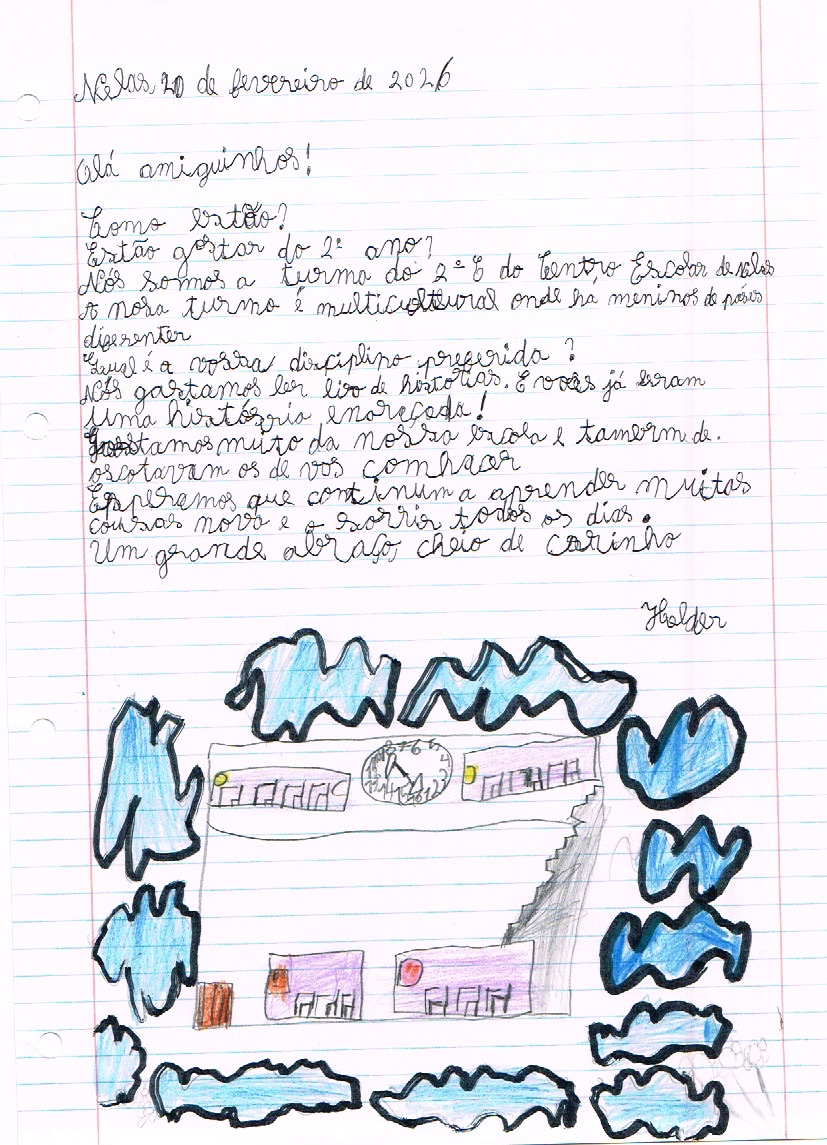 Nelas 20 de fevereiro de 2026
Olá amiguinhos!
Como estão?
Estão gostar do 2º ano?
Nós somos a turma do 2º E do Centro Escolar de Nelas
A nosa turmo é multicultural onde há meninos de países
diferenter
Qual é a vossa disciplino preferida?
Nós gastamos ler livo de histórias. E voces já leram
uma história engraçada!
Gostamos muito da nossa escola e tamerm de.
oscotavam os de vos comhacer
Esperamos que continum a aprender muitas
cousas nova e a sorrir todos os dias.
Um grande abraço, cheio de carinho
Holder